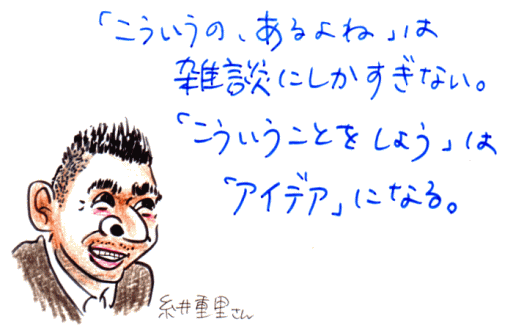 「こういうの、あるよね」は
雑談にしかすぎない。
「こういうことをしよう」は
「アイデア」になる。
糸井重里さん